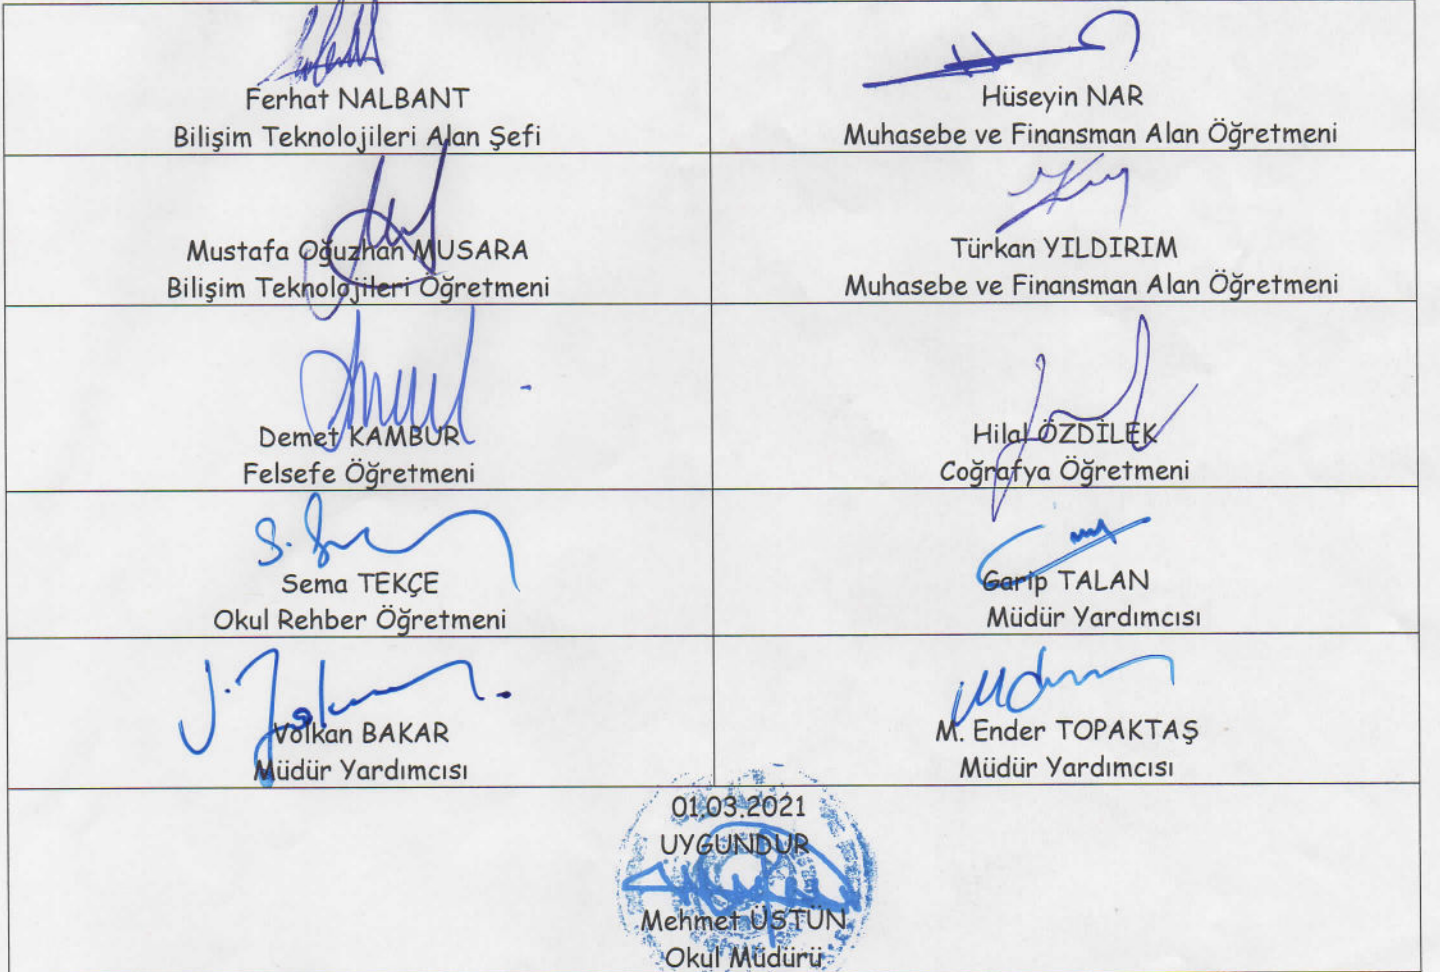 Ferhat NALBANT
Bilişim Teknolojileri Alan Şefi
Hüseyin NAR
Muhasebe ve Finansman Alan Öğretmeni
Mustafa Oğuzhan MUSARA
Bilişim Teknolojileri Öğretmeni
Türkan YILDIRIM
Muhasebe ve Finansman Alan Öğretmeni
Demet KAMBUR
Felsefe Öğretmeni
Hilal ÖZDİLEK
Coğrafya Öğretmeni
Sema TEKÇE
Okul Rehber Öğretmeni
Garip TALAN
Müdür Yardımcısı
Volkan BAKAR
Müdür Yardımcısı
M. Ender TOPAKTAŞ
Müdür Yardımcısı
01.03.2021
UYGUNDUR
Mehmet ÜSTÜN
Okul Müdürü